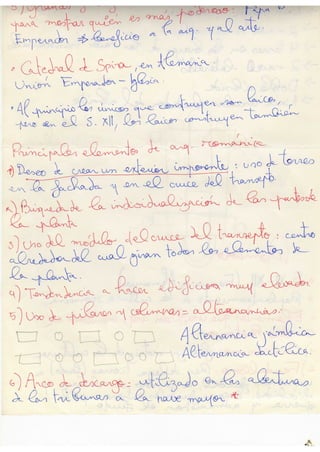 para mostrar quién es más poderoso: Papa o
Emperador => beneficio a la arq. y al arte.
• Catedral de Spira, en Alemania
Unión Emperador - Iglesia.
• Al principio los únicos que construyen son laicos,
pero en el S. XII, los laicos construyen también
Principales elementos de arq. románica
1) Deseo de crear un exterior imponente: uso de torres
en la fachada y en el cruce del transepto.
2) Búsqueda de la individualización de las partes de
la planta
3) Uso del módulo del cruce del transepto: centro
alrededor del cual giran todos los elementos de
la planta.
4) Tendendencia a hacer edificios muy elevados.
5) Uso de pilares y columnas = alternancias:
Alternancia yámbica
Alternancia dactílica.
6) Arco de descarga = utilizado en las aberturas
de las tribunas a la nave mayor *